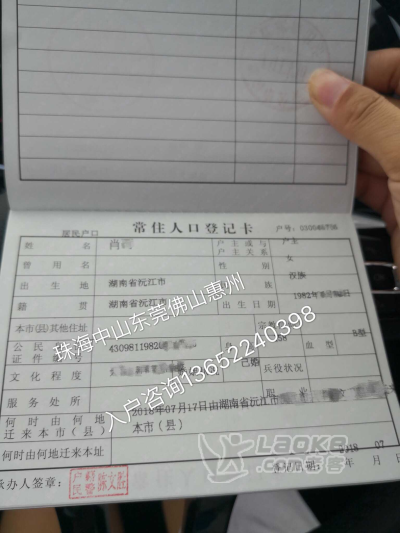 居民户口
常住人口登记卡
户号:
姓名
户主或与户主关系
户主
曾用名
性别
女
出生地
湖南省沅江市
民族
汉族
籍贯
湖南省沅江市
出生日期
1982年
本市(县)其他住址
公民
证件
4309811982
158
血型
文化程度
已婚
兵役状况
服务处所
职业
何时由何地迁来本市(县)
2018年07月17日由湖南省沅江市
本市(县)
何时由何地迁来本址
承办人签章:
2018
07
年
月
日
珠海中山东莞佛山惠州
入户咨询13652240398
Laoke
.com老客